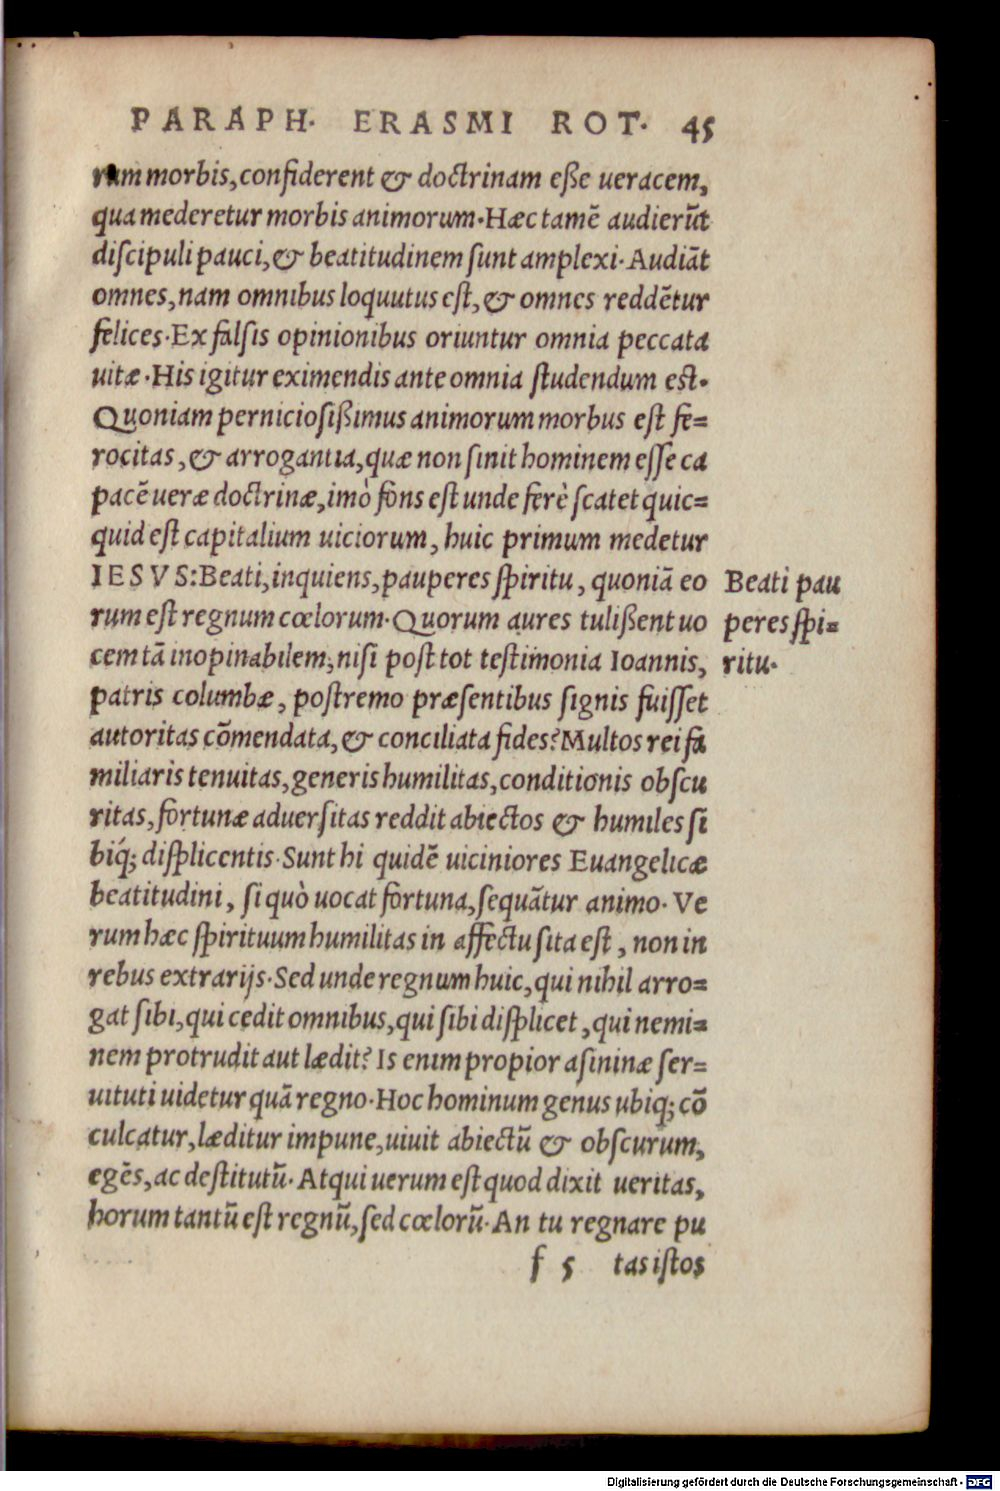 PARAPH. ERASMI ROT. 45
rum morbis, confiderent & doctrinam eße ueracem,
qua mederetur morbis animorum. Hæc tamẽ audierũt
diſcipuli pauci, & beatitudinem ſunt amplexi. Audiãt
omnes, nam omnibus loquutus eſt, & omnes reddẽtur
felices. Ex falſis opinionibus oriuntur omnia peccata
uitæ. His igitur eximendis ante omnia ſtudendum eſt.
Quoniam pernicioſißimus animorum morbus eſt fe=
rocitas, & arrogantia, quæ non ſinit hominem eſſe ca
pacẽ ueræ doctrinæ, imò fons eſt unde ferè ſcatet quic=
quid eſt capitalium uiciorum, huic primum medetur
IESVS: Beati, inquiens, pauperes ſpiritu, quoniã eo
rum eſt regnum cœlorum. Quorum aures tulißent uo
cem tã inopinabilem, niſi poſt tot teſtimonia Ioannis,
patris columbæ, poſtremo præſentibus ſignis fuiſſet
autoritas cõmendata, & conciliata fides? Multos rei fa
miliaris tenuitas, generis humilitas, conditionis obſcu
ritas, fortunæ aduerſitas reddit abiectos & humiles ſi
biq́; diſplicentis. Sunt hi quidẽ uiciniores Euangelicæ
beatitudini, ſi quò uocat fortuna, ſequãtur animo. Ve
rum hæc ſpirituum humilitas in affectu ſita eſt, non in
rebus extrarijs. Sed unde regnum huic, qui nihil arro=
gat ſibi, qui cedit omnibus, qui ſibi diſplicet, qui nemi=
nem protrudit aut lædit? Is enim propior aſininæ ſer=
uituti uidetur quã regno. Hoc hominum genus ubiq; cõ
culcatur, læditur impune, uiuit abiectũ & obſcurum,
egẽs, ac deſtitutũ. Atqui uerum eſt quod dixit ueritas,
horum tantũ eſt regnũ, ſed cœlorũ. An tu regnare pu
f 5 tas iſtos
Beati pau
peres ſpi=
ritu.
Digitalisierung gefördert durch die Deutsche Forschungsgemeinschaft - DFG